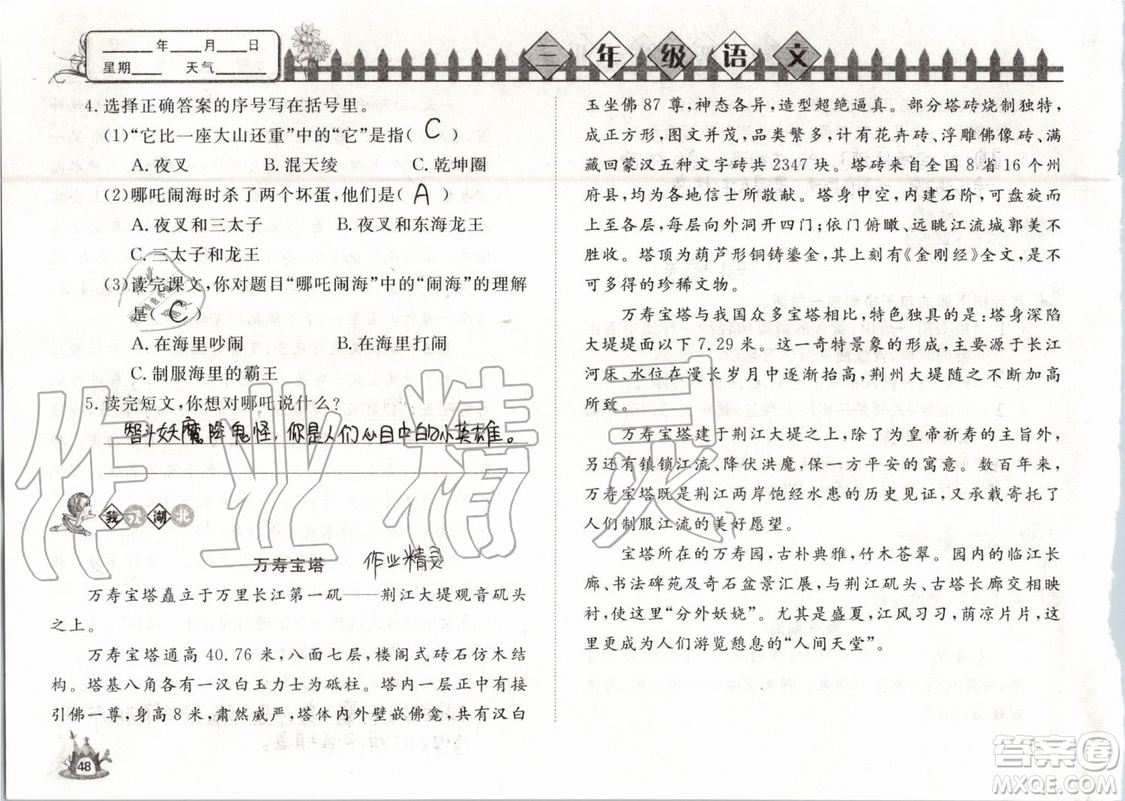 ______年____月____日
星期____ 天气____
三年级语文
4.选择正确答案的序号写在括号里。
(1)“它比一座大山还重”中的“它”是指( C )
A.夜叉 B.混天绫 C.乾坤圈
(2)哪吒闹海时杀了两个坏蛋,他们是( A )
A.夜叉和三太子 B.夜叉和东海龙王
C.三太子和龙王
(3)读完课文,你对题目“哪吒闹海”中的“闹海”的理解
是( C )
A.在海里吵闹 B.在海里打闹
C.制服海里的霸王
5.读完短文,你想对哪吒说什么?
智斗妖魔降鬼怪,你是人们心目中的小英雄。
我 湖北
万寿宝塔 作业精灵
万寿宝塔矗立于万里长江第一矶——荆江大堤观音矶头
之上。
万寿宝塔通高 40.76 米,八面七层,楼阁式砖石仿木结
构。塔基八角各有一汉白玉力士为砥柱。塔内一层正中有接
引佛一尊,身高 8 米,肃然威严,塔体内外壁嵌佛龛,共有汉白
48
玉坐佛 87 尊,神态各异,造型超逼真。部分塔砖烧制独特,
成正方形,图文并茂,品类繁多,计有花卉砖、浮雕佛像砖、满
藏回蒙汉五种文字砖共 2347 块。塔砖来自全国 8 省 16 个州
府县,均为各地信士所敬献。塔身中空,内建石阶,可盘旋而
上至各层,每层向外洞开四门;依门俯瞰,远眺江流城郭美不
胜收。塔顶为葫芦形铜铸鎏金,其上刻有《金刚经》全文,是不
可多得的珍稀文物。
万寿宝塔与我国众多宝塔相比,特色独具的是:塔身深陷
大堤堤面以下 7.29 米。这一奇特景象的形成,主要源于长江
河床、水位在漫长岁月中逐渐抬高,荆州大堤随之不断加高
所致。
万寿宝塔建于荆江大堤之上,除了为皇帝祈寿的主旨外,
还有镇锁江流、降伏洪魔,保一方平安的寓意。数百年来,
万寿宝塔既是荆江两岸饱经水患的历史见证,又寄托了
人们制服江流的美好愿望。
宝塔所在的万寿园,古朴典雅,竹木苍翠。园内的临江长
廊、书法碑苑及奇石盆景汇展,与荆江矶头、古塔长廊交相映
衬,使这里“分外妖娆”。尤其是盛夏,江风习习,荫凉片片,这
里更成为人们游览憩息的“人间天堂”。
作业精灵
答案卷
MXQE.COM